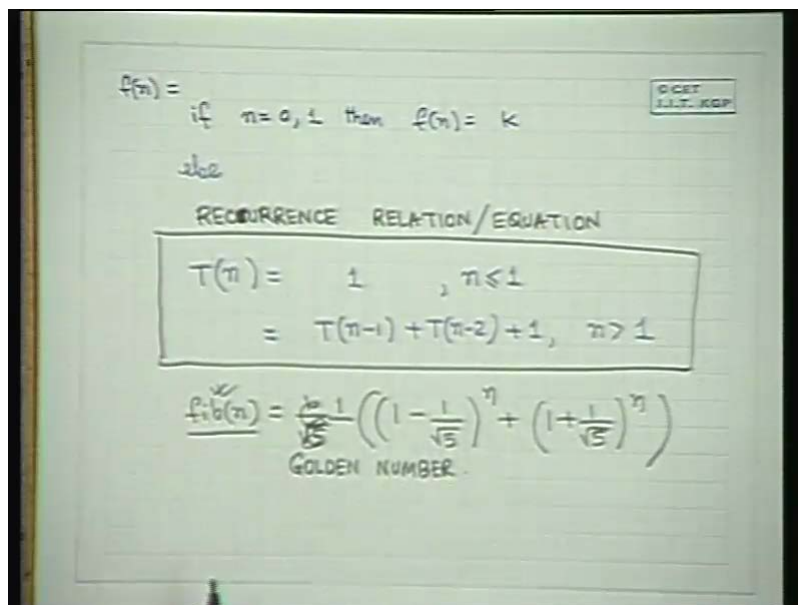 f(n) =
© CET
I.I.T. KGP
if n=0, 1 then f(n) = K
else
RECURRENCE RELATION/EQUATION
T(n) = 1 , n≤1
= T(n-1) + T(n-2) + 1, n>1
fib(n) = 1/√5 ((1 - 1/√5)^n + (1 + 1/√5)^n)
GOLDEN NUMBER.